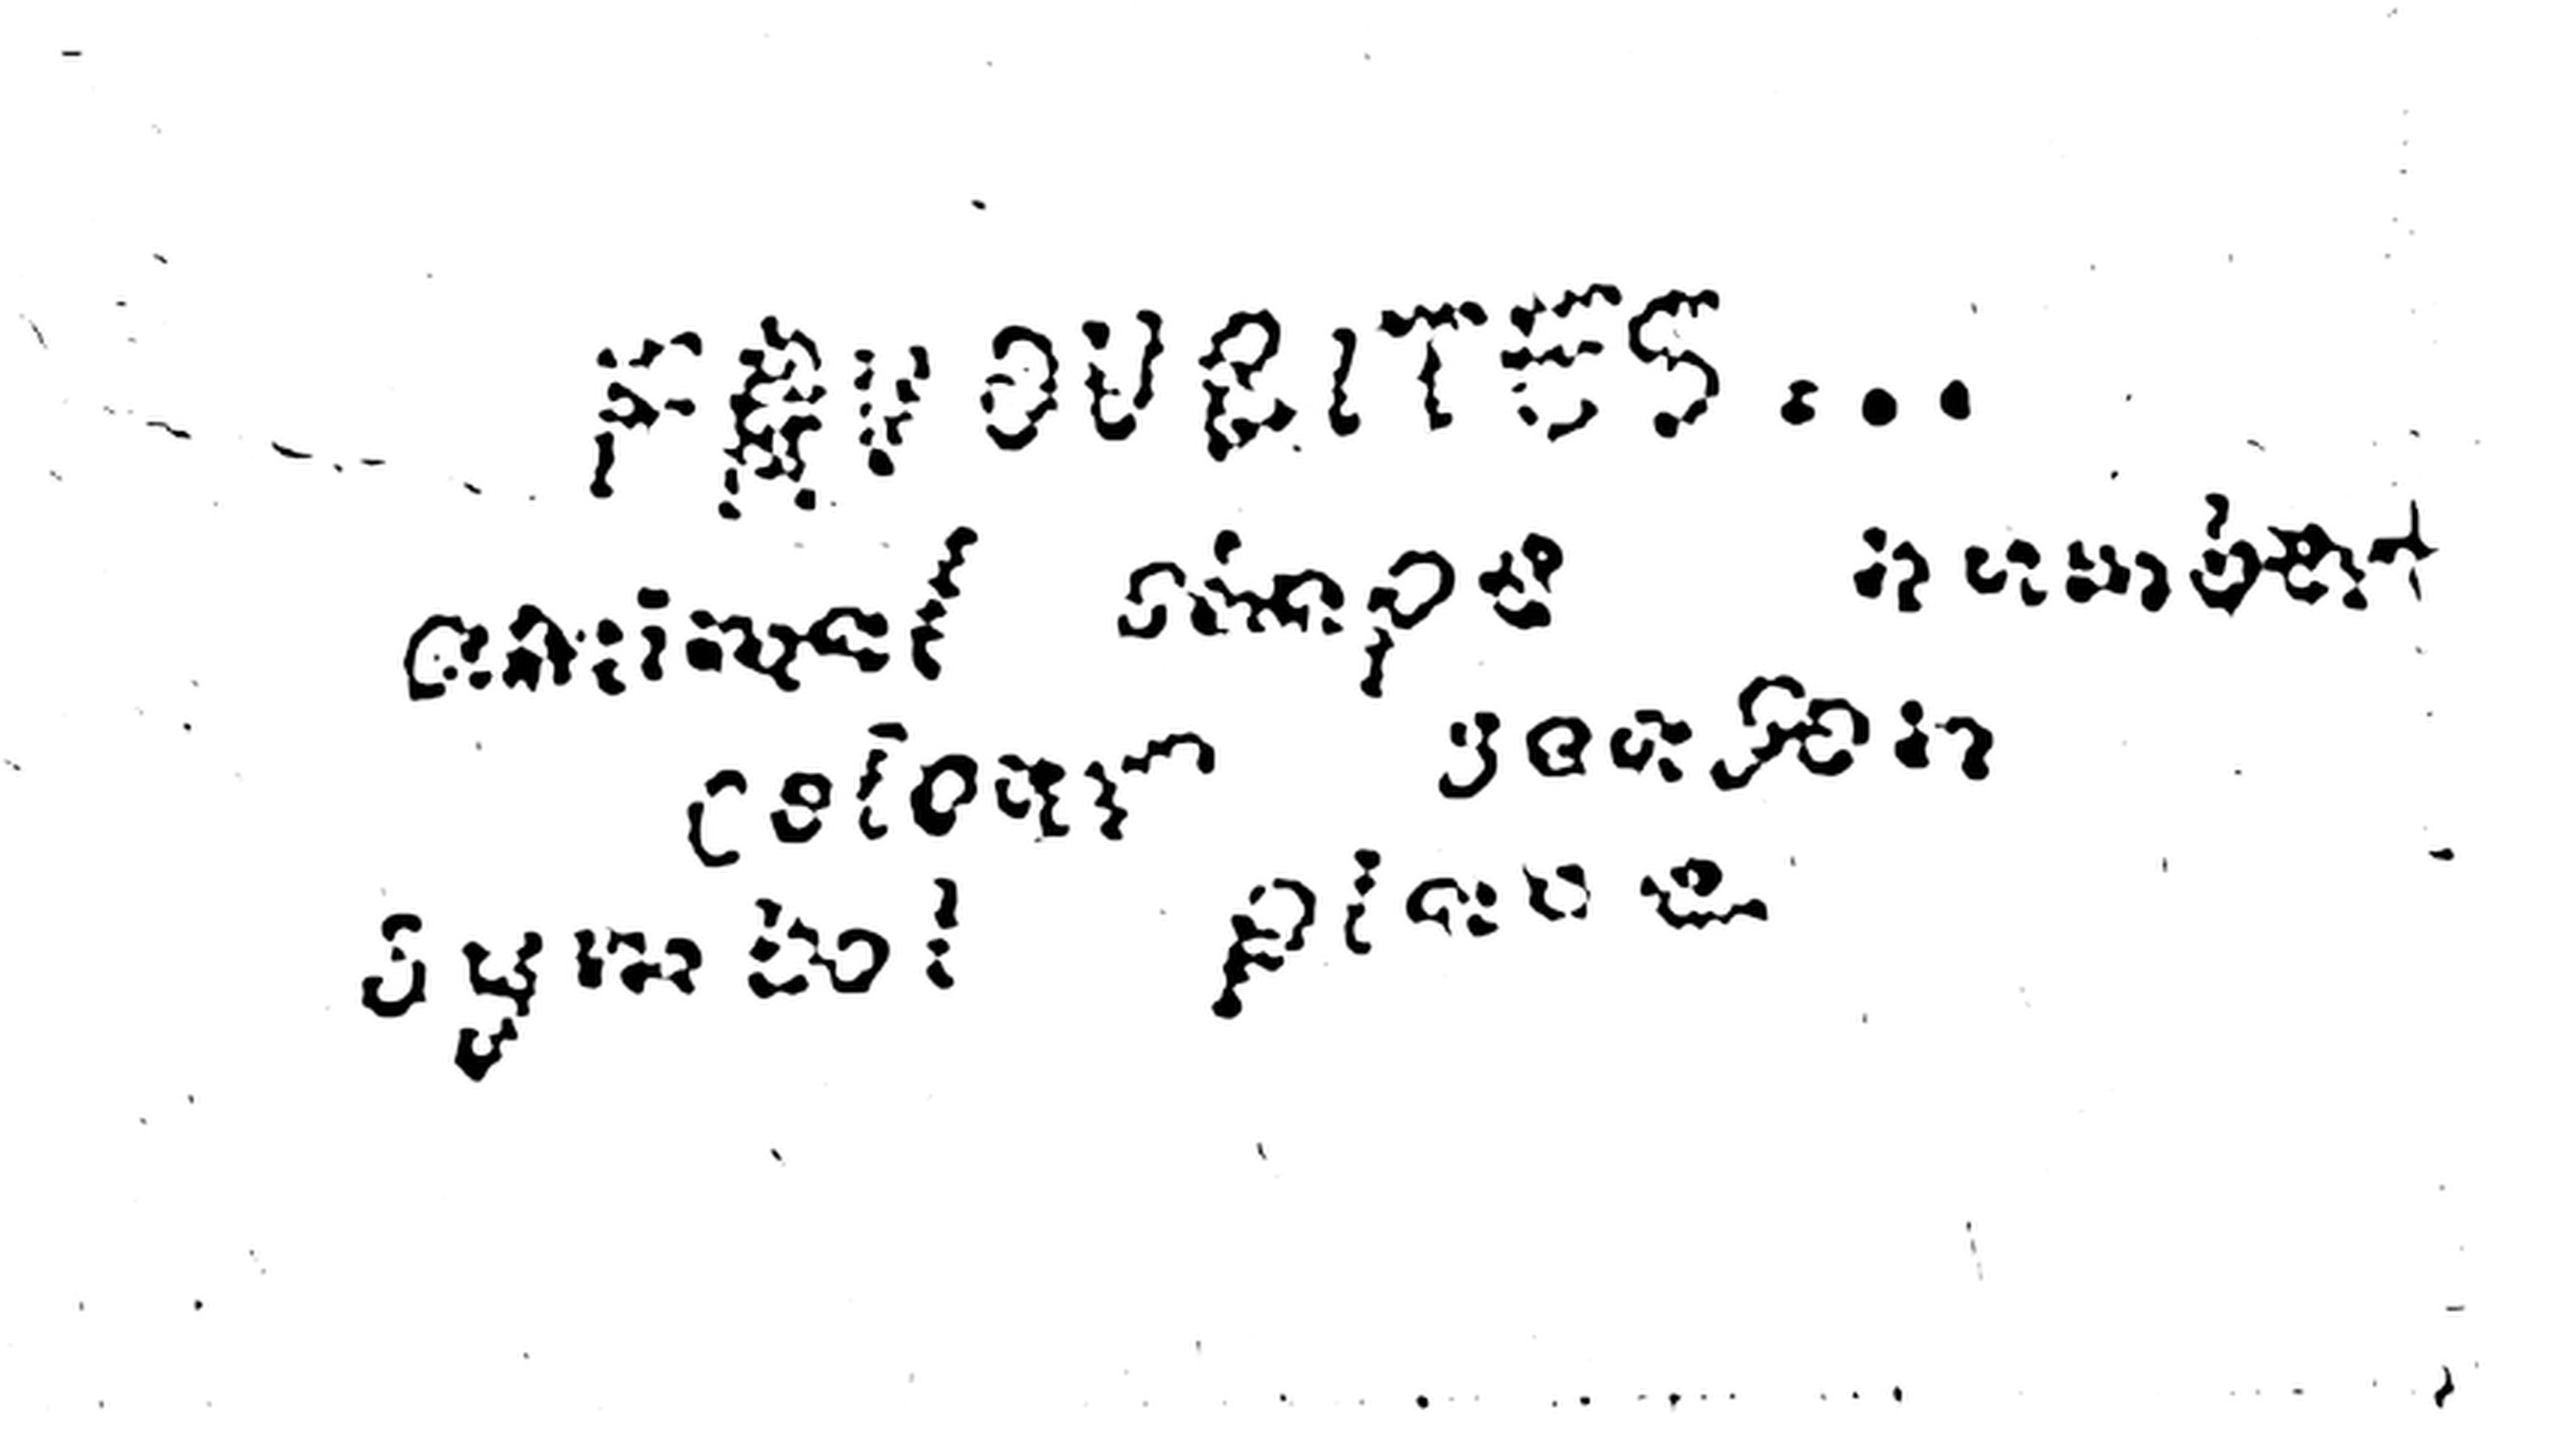 FAVOURITES...
animal shape number
colour season
symbol place